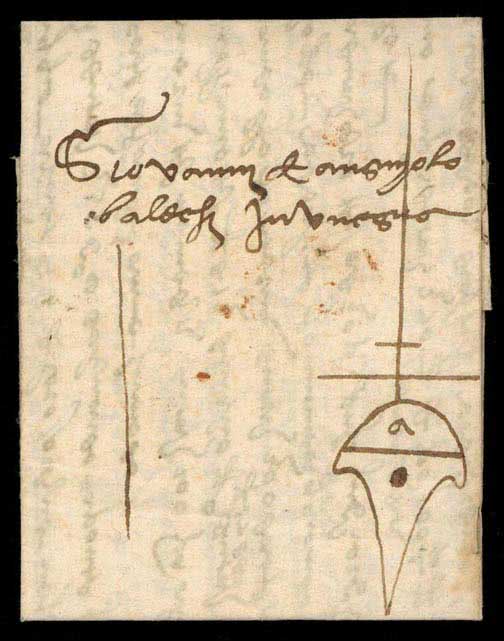 Giovannj & angiolo
baldesj In Vinegia
a